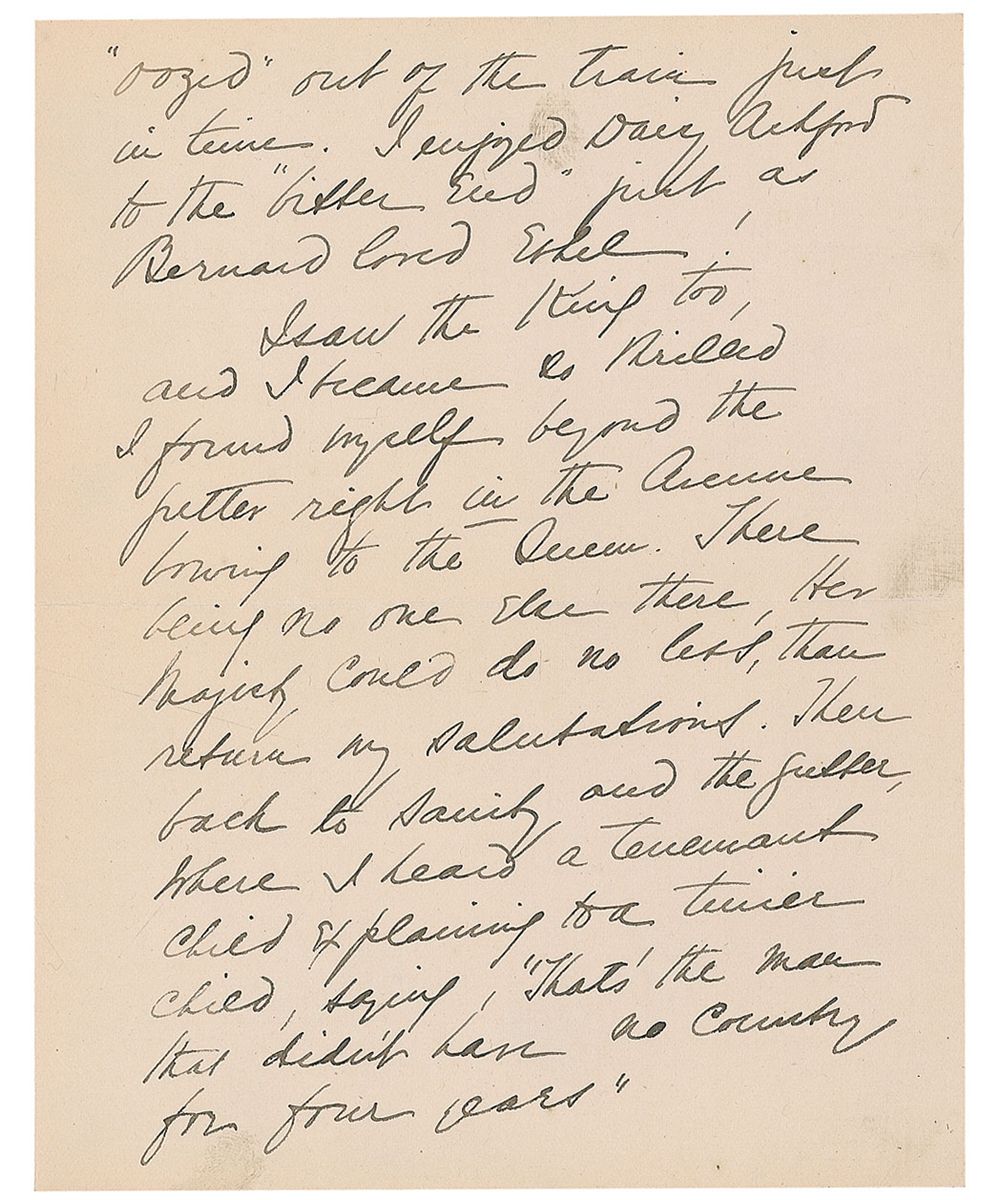 "oozed" out of the train just
in time. I enjoyed Daisy Ashford
to the "bitter End" just as
Bernard loved Ethel!
I saw the King too,
and I became so thrilled
I found myself beyond the
gutter right in the Avenue
bowing to the Queen. There
being no one Else there, Her
Majesty could do no less, than
return my salutations. Then
back to sanity and the gutter,
Where I heard a tenemant
child Explaining to a tinier
child, saying, "Thats' the man
that didn't have no Country
for four years"